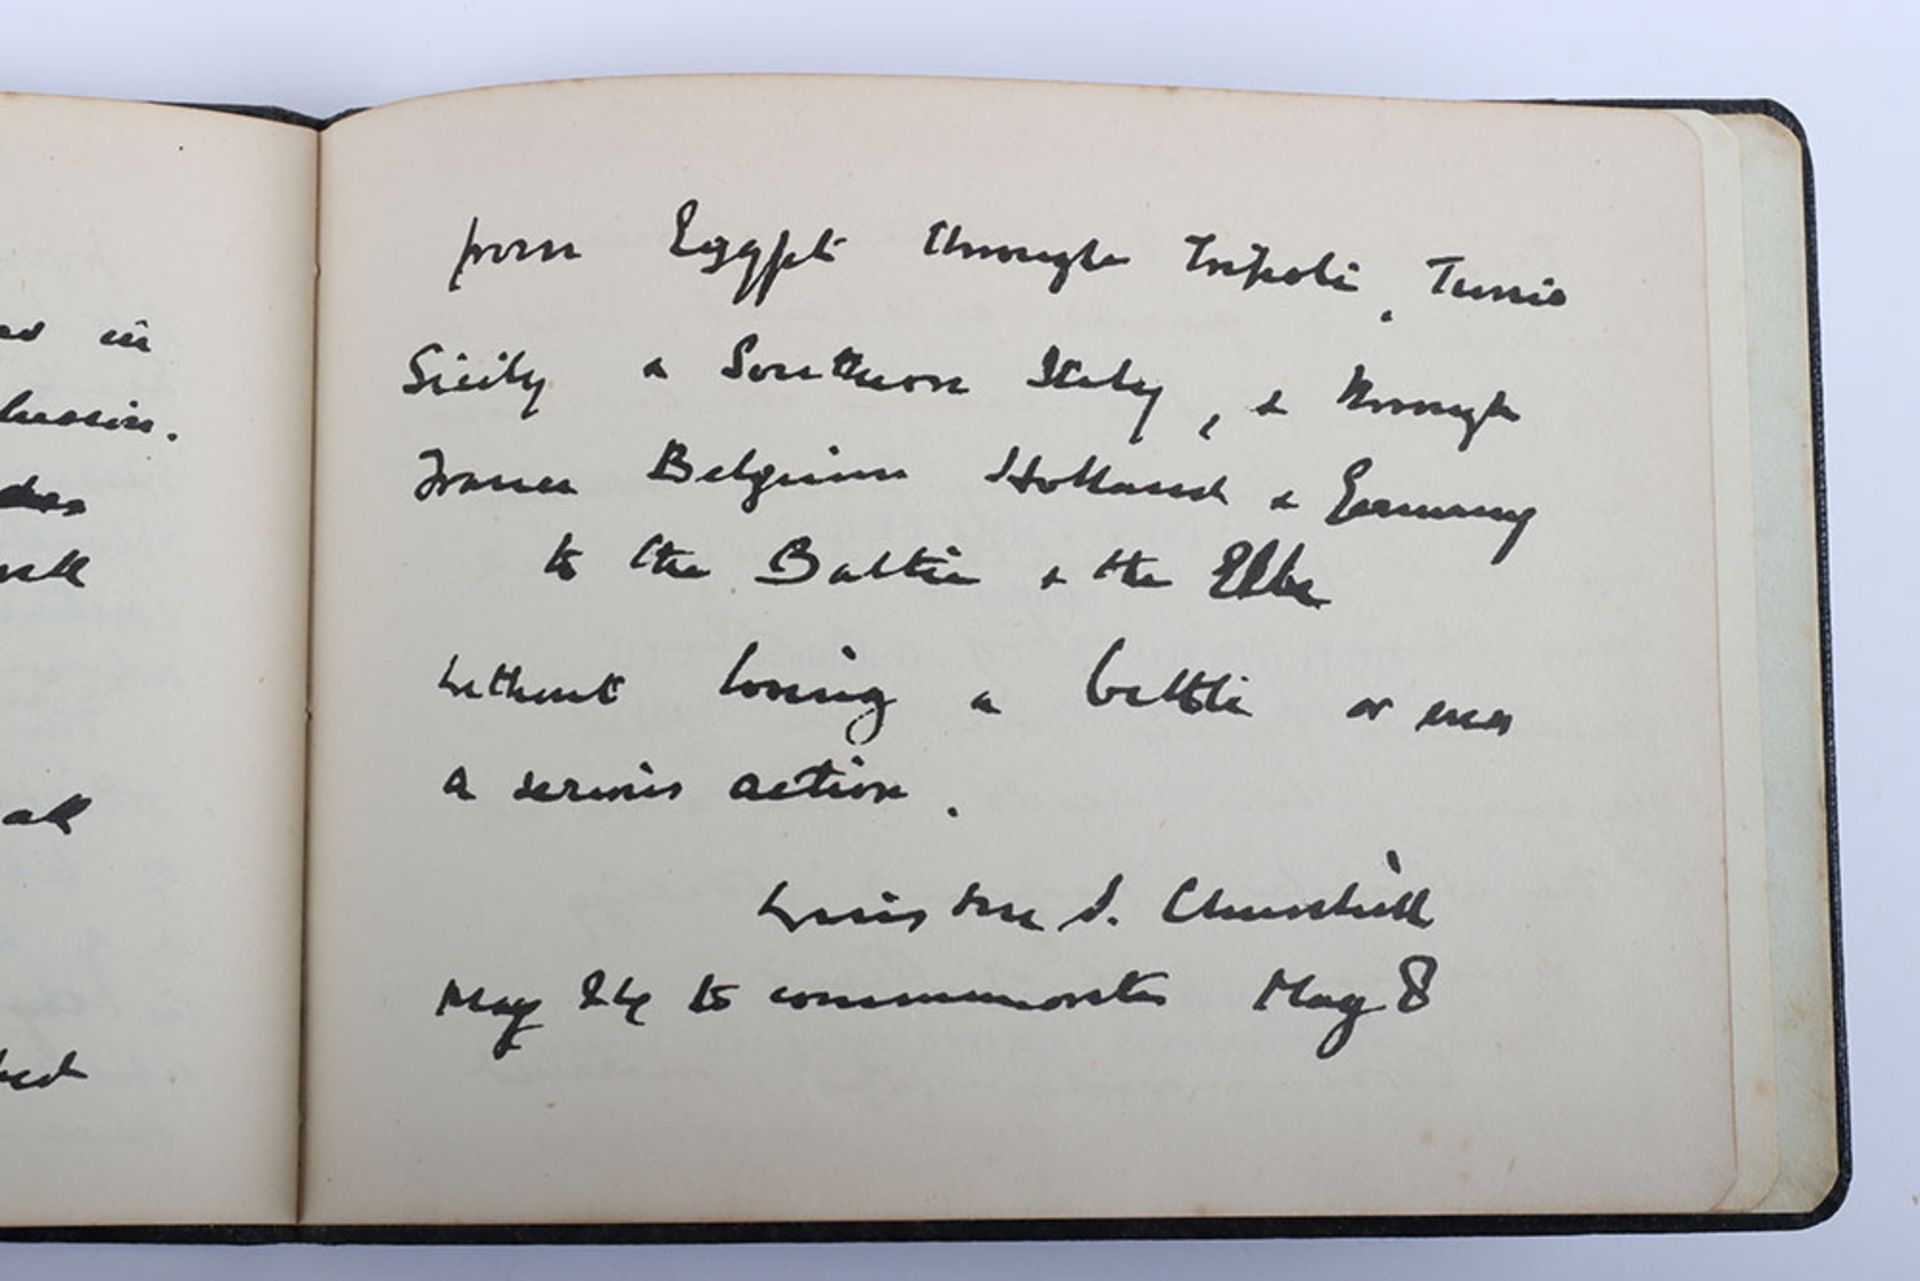 in
all
from Egypt through Tripoli, Tunis
Sicily & Southern Italy, & through
France Belgium Holland & Germany
to the Baltic & the Elbe
without losing a battle or even
a serious action.
Winston S. Churchill
May 24 to commemorate May 8